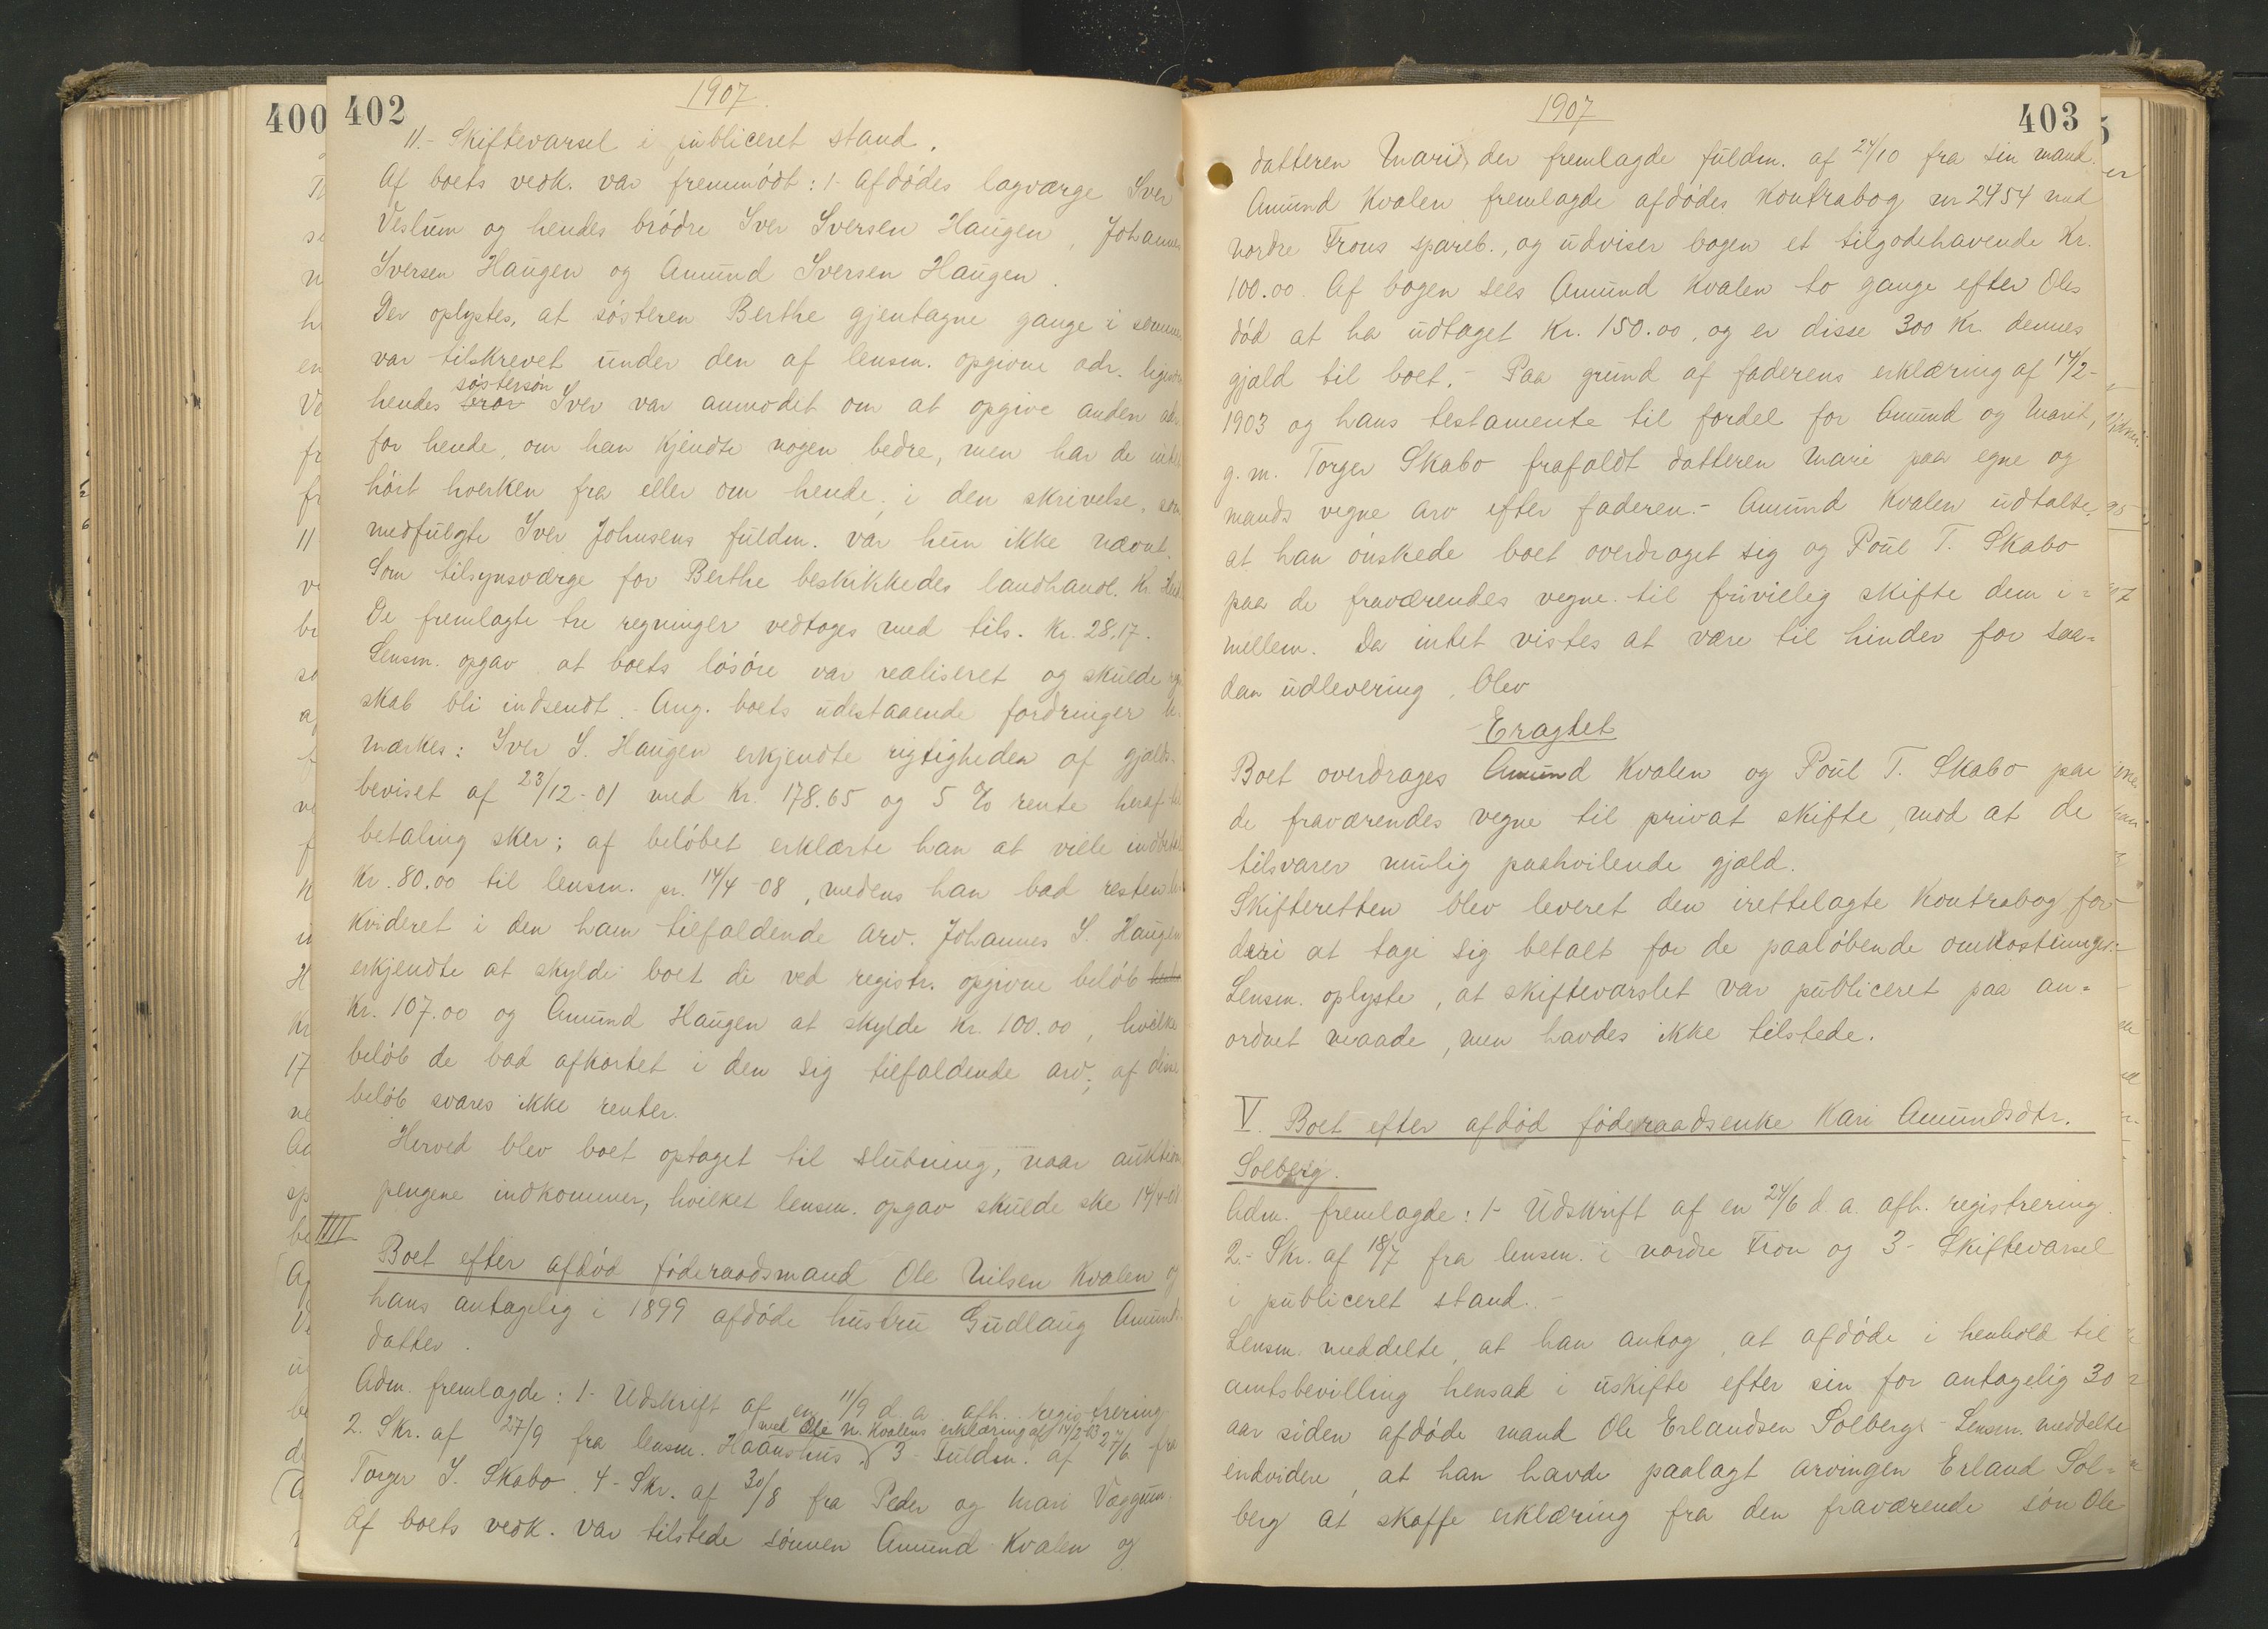 402
1907
11.- Skiftevarsel i publiceret stand.
Af boets vedk. var fremmødt: 1- Afdødes lagværge Iver
Veslum og hendes brødre Iver Iversen Haugen, Johannes
Iversen Haugen og Amund Iversen Haugen.
Der oplystes, at søsteren Berthe gjentagne gange i
var tilskrevet under den af lensm. opgivne adr.
søstersøn
hendes bror Iver var anmodet om at opgive anden
for hende, om han kjendte nogen bedre, men har de
hørt hverken fra eller om hende; i den skrivelse, som
medfulgte Iver Johnsens fuldm. var hun ikke nævnt.
Som tilsynsværge for Berthe beskikkedes landhandl. Kr.
De fremlagte tre regninger vedtoges med tils. Kr. 28.17.
Lensm. opgav at boets løsøre var realiseret og skulde
skab bli indsendt. - Ang. boets udestaaende fordringer
mærkes: Iver I. Haugen erkjendte rigtigheden af gjælds-
beviset af 23/12-01 med Kr. 178.65 og 5 % rente heraf til
betaling sker; af beløbet erklærte han at ville indbetale
Kr. 80.00 til lensm. pr. 14/4-08, medens han bad resten
kvideret i den ham tilfaldende arv. Johannes I. Haugen
erkjendte at skylde boet de ved registr. opgivne beløb
Kr. 107.00 og Amund Haugen at skylde Kr. 100.00, hvilke
beløb de bad afkortet i den sig tilfaldende arv; af disse
beløb svares ikke renter.
Herved blev boet optaget til slutning, naar auktions
pengene indkommer, hvilket lensm. opgav skulde ske 14/4-08
IIII
Boet efter afdød føderaadsmand Ole Nilsen Kvalen og
hans antagelig i 1899 afdøde hustru Gudlaug Amunds-
datter.
Adm. fremlagde: 1- Udskrift af en 11/9 d. a. afh. registrering
med Ole N. Kvalens erklæring af 14/2-03
2. Skr. af 27/9 fra lensm. Haanshus. 3- Fuldm. af 27/6 fra
Torger I. Skabo. 4- Skr. af 30/8 fra Peder og Mari Væggum.
Af boets vedk. var tilstede sønnen Amund Kvalen og
1907
403
datteren Mari, der fremlagde fuldm. af 24/10 fra sin mand.
Amund Kvalen fremlagde afdødes Kontrabog nr 2454 med
nordre Frons spareb., og udviser bogen et tilgodehavende Kr.
100.00. Af bogen sees Amund Kvalen to gange efter Oles
død at ha udtaget Kr. 150.00, og er disse 300 Kr. dennes
gjæld til boet. - Paa grund af faderens erklæring af 14/2-
1903 og hans testamente til fordel for Amund og Marit,
g. m. Torger Skabo frafaldt datteren Mari paa egne og
mands vegne arv efter faderen. - Amund Kvalen udtalte,
at han ønskede boet overdraget sig og Poul T. Skabo
paa de fraværendes vegne til frivillig skifte dem i=
mellem. Da intet vistes at være til hinder for saa=
dan udlevering, blev
Eragtet
Boet overdrages Amund Kvalen og Poul T. Skabo paa
de fraværendes vegne til privat skifte, mod at de
tilsvarer mulig paahvilende gjæld.
Skifteretten blev leveret den irettelagte Kontrabog for
deri at tage sig betalt for de paaløbende omkostninger.
Lensm. oplyste, at skiftevarslet var publiceret paa an=
ordnet maade, men havdes ikke tilstede.
V. Boet efter afdød føderaadsenke Kari Amundsdtr.
Solberg.
Adm. fremlagde: 1- Udskrift af en 24/6 d. a. afh. registrering.
2.- Skr. af 18/7 fra lensm. i nordre Fron og 3- Skiftevarsel
i publiceret stand. -
Lensm. meddelte, at han antog, at afdøde i henhold til
amtsbevilling hensad i uskifte efter sin for antagelig 30
aar siden afdøde mand Ole Erlandsen Solberg. - Lensm. meddelte
endvidere, at han havde paalagt arvingen Erland Sol=
berg at skaffe erklæring fra den fraværende søn Ole
400